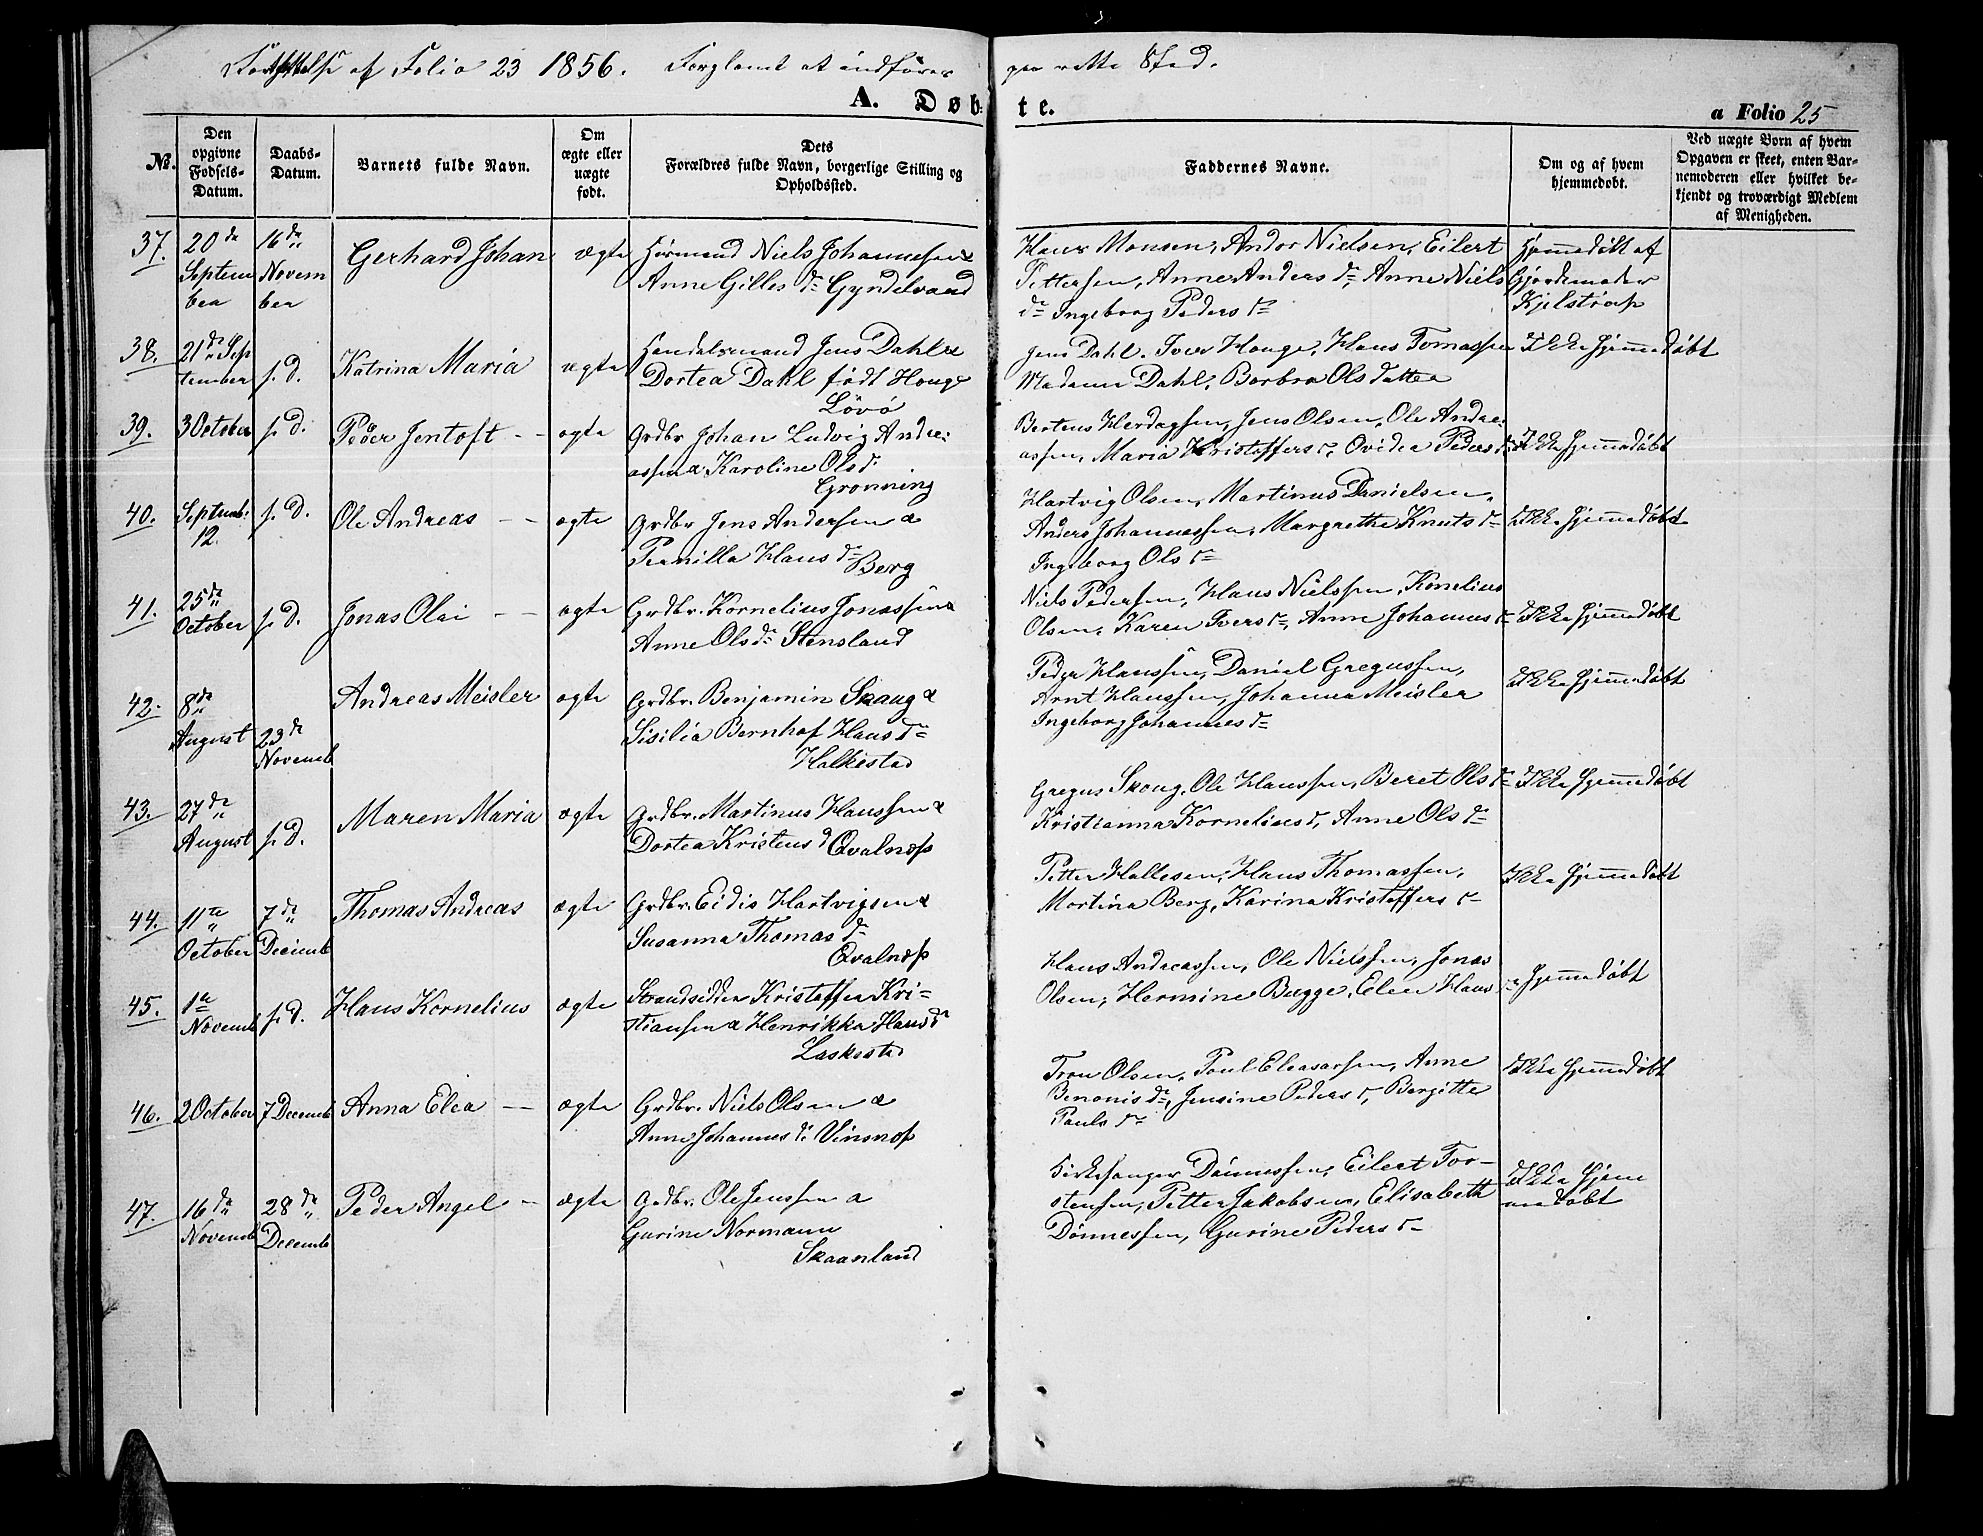 Fortsættelse af Folio 23 1856. Forglemt at indføres paa rette Sted.
A. Døbte.
a Folio 25
No.
Den opgivne Fødsels-Datum.
Daabs-Datum.
Barnets fulde Navn.
Om ægte eller uægte født.
Dets Forældres fulde Navn, borgerlige Stilling og Opholdssted.
Faddernes Navne.
Om og af hvem hjemmedøbt.
Ved uægte Børn af hvem Opgaven er skeet, enten Barnemoderen eller hvilket bekjendt og troværdigt Medlem af Menigheden.
37. 20de September 16de November Gerhard Johan ægte
Niels Johannesen &
Anne Gilles dr Gyndelvand
Hans Monsen, Andor Nielsen, Eilert
Pettersen, Anne Anders dr, Anne Niels
dr Ingeborg Peders dr
Hjemmedøbt af
Gjordemoder
Kjelstrup
38. 21de September s. d. Katrina Maria ægte
Handelsmand Jens Dahl &
Dortea Dahl født Houge
Løvø
Jens Dahl, Iver Houge, Hans Tomassen
Madame Dahl, Borbra Olsdatter
Ikke hjemmedøbt
39. 3 October s. d. Peder Jentoft - - ægte
Grdbr Johan Ludvig Andre-
assen & Karoline Olsd.
Grønning
Berteus Herdagsen, Jens Olsen, Ole Andre-
assen, Maria Kristoffers d, Ovidea Peders d
Ikke hjemmedøbt
40. Septemb: 12. s. d. Ole Andreas - - ægte
Grdbr Jens Andersen &
Pernilla Hans dr Berg
Hartvig Olsen, Martinus Danielsen,
Anders Johannessen, Margrethe Knuts dr
Ingeborg Ols dr
Ikke hjemmedøbt
41. 25de October s. d. Jonas Olai - - ægte
Grdbr. Kornelius Jonassen &
Anne Ols dr Stensland
Niels Pedersen, Hans Nielssen, Konelius
Olsen, Karen Ivers dr, Anne Johannes dr
Ikke hjemmedøbt
42. 8de August 23de Novemb Andreas Meisler ægte
Grdbr. Benjamin Skaug &
Sisilia Bernhof Hans dr
Halkestad
Peder Hanssen, Daniel Gregussen,
Arnt Hanssen, Johanna Meisler
Ingeborg Johannes dr
Ikke hjemmedøbt
43. 27de August s. d. Maren Maria ægte
Grdbr. Martinus Hanssen &
Dortea Kristens d Qvalnæs
Gregus Skoug, Ole Hanssen, Beret Ols dr
Kristianna Kornelius d, Anne Ols dr
Ikke hjemmedøbt
44. 11te October 7de Decemb Thomas Andreas ægte
Grdbr. Eidis Hartvigsen &
Susanna Thomas dr
Qvalnæs
Petter Hallesen, Hans Thomassen,
Martina Berg, Karina Kristoffers dr
Ikke hjemmedøbt
45. 1te Novemb s. d. Hans Kornelius ægte
Strandsidder Kristoffer Kri-
stiansen & Henrikka Hansd
Laskestad
Hans Andreassen, Ole Nielssen, Jonas
Olsen, Hermine Bugge, Elen Hans
hjemmedøbt
46. 2 October 7 Decemb Anna Elea - - ægte
Grdbr. Niels Olsen &
Anne Johannes d. Vinsnæs
Tron Olsen, Poul Eleasarsen, Anne
Benonis dr, Jensine Peders d, Bergitte
Pauls dr
Ikke hjemmedøbt
47. 16de Novemb 28de Decemb Peder Angel - ægte
Grdbr. Ole Jenssen &
Gurine Normann
Skaanland
Kirkesanger Dønnessen, Eilert Tor-
stensen, Petter Jakobsen, Elisabeth
Dønnessen, Gurine Peders dr
Ikke hjem
medøbt